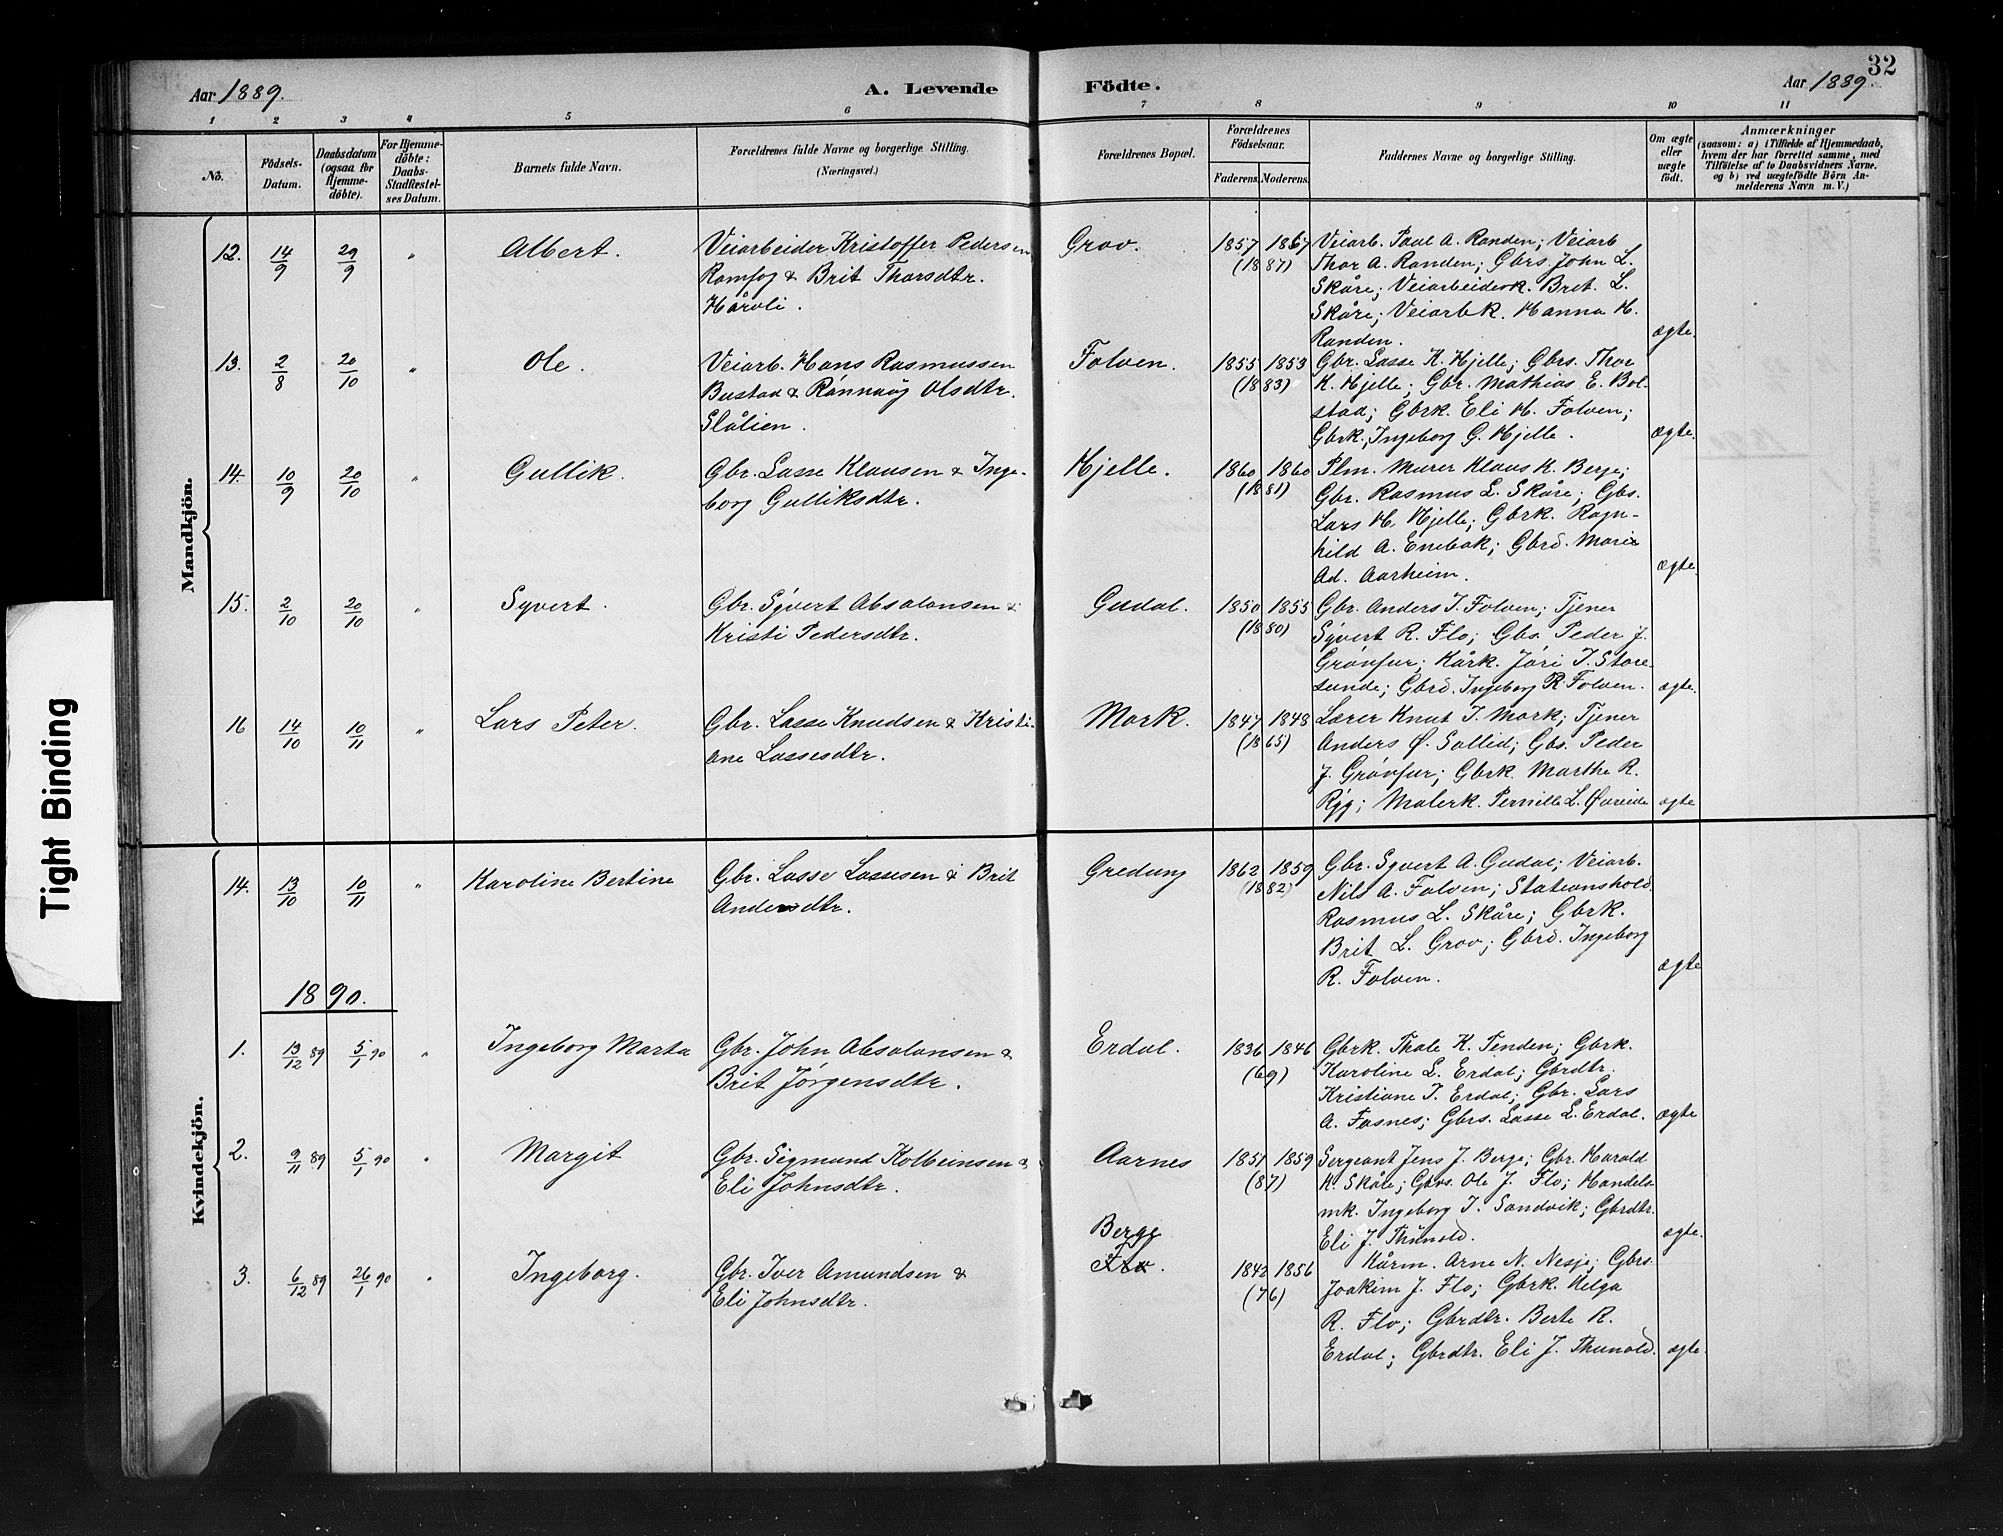 32
Aar 1889.
A. Levende Födte.
Aar 1889.
1 2 3 4 5 6 7 8 9 10 11
No.
Födsels-
Datum.
Daabsdatum
(ogsaa for
Hjemme-
døbte).
For Hjemme-
döbte:
Daabs-
Stadfæstel-
ses Datum.
Barnets fulde Navn.
Forældrenes fulde Navne og borgerlige Stilling.
(Næringsvei.)
Forældrenes Bopæl.
Forældrenes
Födselsaar.
Faderens. Moderens.
Faddernes Navne og borgerlige Stilling.
Om ægte
eller
uægte
födt.
Anmærkninger
(saasom: a) i Tilfælde af Hjemmedaab,
hvem der har forrettet samme, med
Tilföielse af to Daabsvidners Navne.
og b) ved uægtefödte Börn An-
melderens Navn m. V.)
Mandkjön.
12. 14/9 29/9 " Albert.
Veiarbeider Kristoffer Pedersen
Ramfog & Brit Thorsdtr.
Håroli.
Grov.
1857 1867
(1887)
Veiarb. Paul A. Randen; Veiarb
Thor A. Randen; Gbrs. John L.
Skåre; Veiarbeiderk. Brit. L.
Skåre; Veiarbk. Hanna H.
Randen.
ægte.
13. 2/8 20/10 " Ole.
Veiarb. Hans Rasmussen
Bustad & Rønnaug Olsdtr.
Slålien.
Folven.
1855 1853
(1883)
Gbr. Lasse K. Hjelle; Gbrs. Thor
K. Hjelle; Gbr. Mathias E. Bol-
stad; Gbrk. Eli H. Folven;
Gbrk. Ingeborg G. Hjelle.
ægte.
14. 10/9 20/10 " Gullik.
Gbr. Lasse Klausen & Inge-
borg Gulliksdtr.
Hjelle.
1860 1860
(1881)
Plm. Murer Klaus K. Berge;
Gbr. Rasmus L. Skåre; Gbs.
Lars H. Hjelle; Gbrk. Ragn-
hild A. Enebak; Gbrd. Marie
Ad. Aarheim.
ægte.
15. 2/10 20/10 " Syvert.
Gbr. Syvert Absalonsen &
Kristi Pedersdtr.
Gudal.
1850 1855
(1880)
Gbr. Anders I. Folven; Tjener
Syvert R. Flo; Gbs. Peder J.
Grønfur; Kårk. Jøri I. Store-
sunde; Gbrd. Ingeborg R. Folven.
ægte.
16 14/10 10/11 " Lars Peter.
Gbr. Lasse Knudsen & Kristi-
ane Lassesdtr.
Mork.
1847 1848
(1865)
Lærer Knut I. Mork; Tjener
Anders Ø. Sollid; Gbs. Peder
J. Grønfur; Gbrk. Marthe R.
Ryg; Malerk. Pernille L. Øvreide
ægte
Kvindekjön.
14. 13/10 10/11 " Karoline Bertine
Gbr. Lasse Lassesen & Brit
Andersdtr.
Gredung
1862 1859
(1882)
Gbr. Syvert A. Gudal; Veiarb.
Nils A. Folven; Stationshold.
Rasmus L. Skåre; Gbrk.
Brit L. Grov; Gbrd. Ingeborg
R. Folven.
ægte
1890.
1. 13/12 89 5/1 90 " Ingeborg Marta
Gbr. John Absalonsen &
Brit Jørgensdtr.
Erdal.
1836 1846
(69)
Gbrk. Thale K. Tenden; Gbrk.
Karoline L. Erdal; Gbrdtr.
Kristiane I. Erdal; Gbr. Lars
A. Fosnes; Gbrs. Lasse L. Erdal.
ægte
2. 9/11 89 5/1 90 " Margit
Gbr. Sigmund Kolbeinsen &
Eli Johnsdtr.
Aarnes
1851 1859
(87)
Sergeant Jens J. Berge; Gbr. Harald
K. Skåre; Gbrs. Ole J. Flo; Handels-
mk. Ingeborg I. Sandvik; Gbrdtr.
Eli J. Thunold.
ægte.
3. 6/12 89 26/1 90 " Ingeborg.
Gbr. Iver Amundsen &
Eli Johnsdtr.
Berge
Flo.
1842 1856
(76)
Kårm. Arne N. Nesje; Gbrs.
Joakim J. Flo; Gbrk. Helga
R. Flo; Gbrdtr. Berte R.
Erdal; Gbrdtr. Eli J. Thunold.
ægte.
Tight Binding